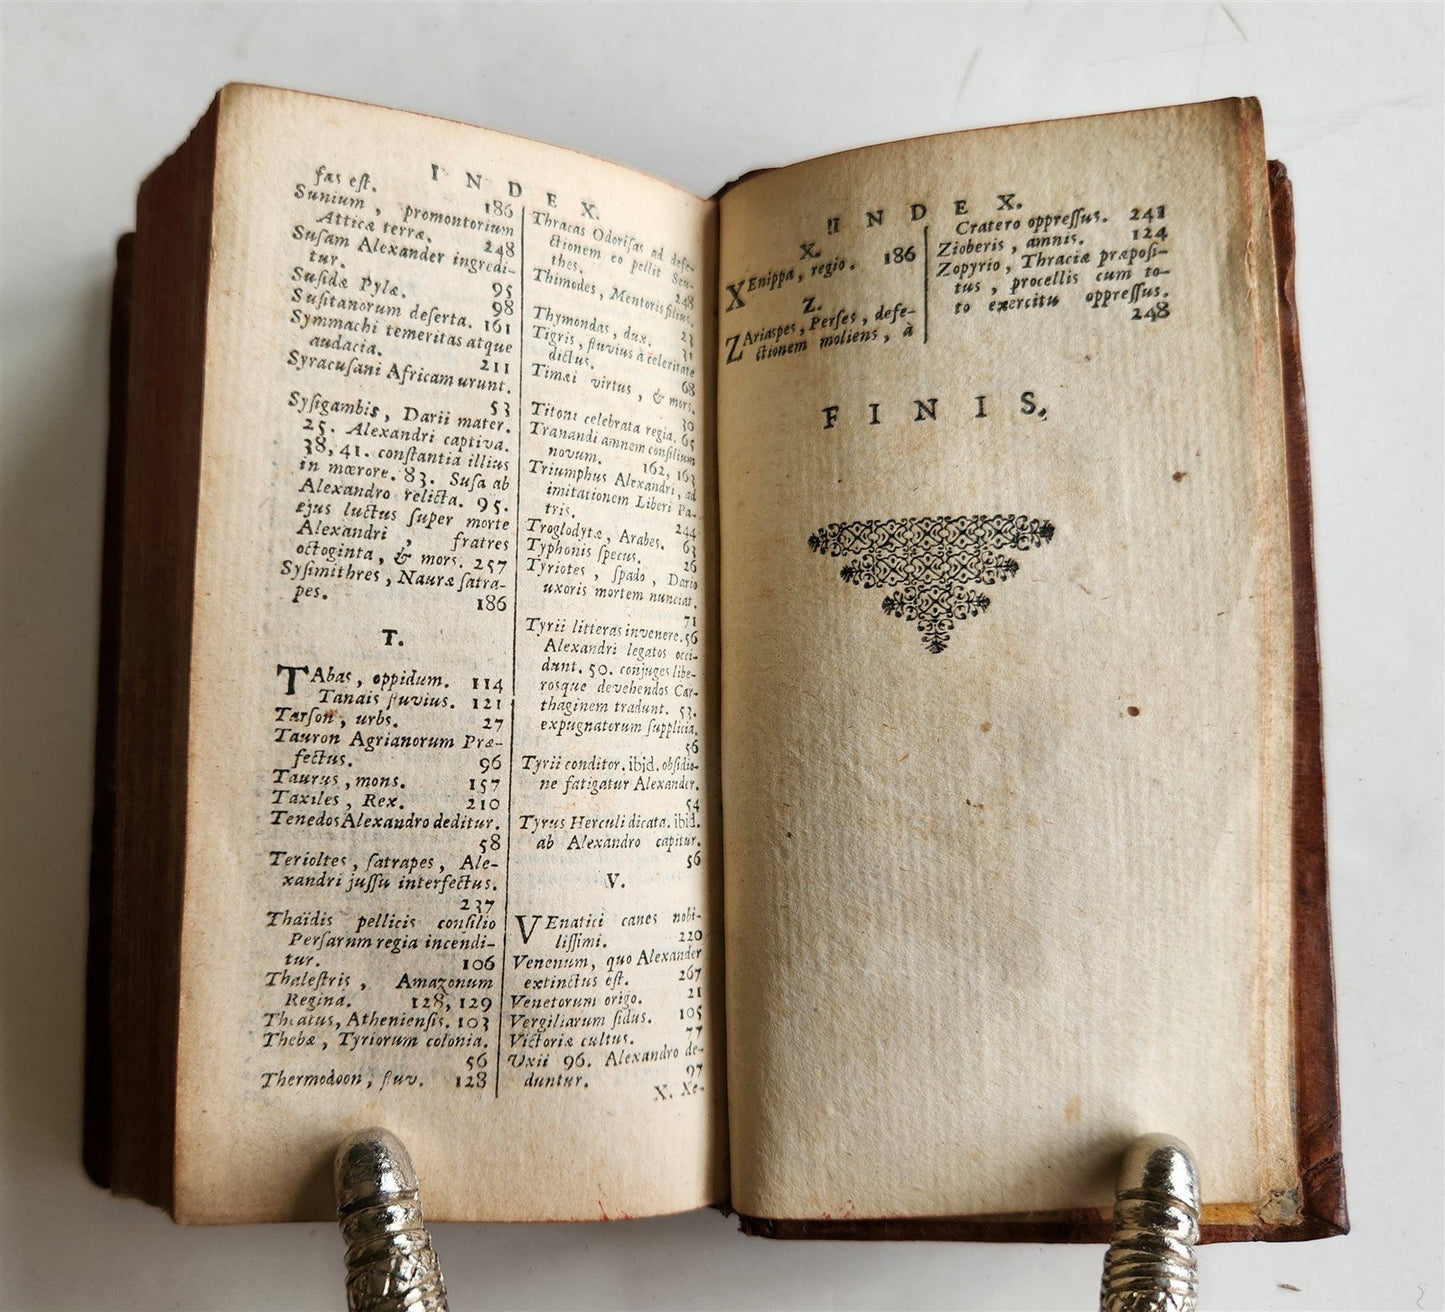 INDEX.
fas est. 186
Sunium, promontorium
Atticæ terræ. 248
Susam Alexander ingredi-
tur. 95
Susidæ Pylæ. 98
Susitanorum deserta. 161
Symmachi temeritas atque
audacia. 211
Syracusani Africam urunt.
53
Sysigambis, Darii mater.
25. Alexandri captiva.
38, 41. constantia illius
in mærore. 83. Susa ab
Alexandro relicta. 95.
ejus luctus super morte
Alexandri, fratres
octoginta, & mors. 257
Sysimithres, Nauræ satra-
pes. 186
T.
TAbas, oppidum. 114
Tanais fluvius. 121
Tarson, urbs. 27
Tauron Agrianorum Præ-
fectus. 96
Taurus, mons. 157
Taxiles, Rex. 210
Tenedos Alexandro deditur.
58
Terioltes, satrapes, Ale-
xandri jussu interfectus.
237
Thaïdis pellicis consilio
Persarum regia incendi-
tur. 106
Thalestris, Amazonum
Regina. 128, 129
Theatus, Atheniensis. 103
Thebæ, Tyriorum colonia.
56
Thermodoon, fluv. 128
Thracas Odorisas ad defe-
ctionem eo pellit Seu-
thes. 248
Thimodes, Mentoris filius.
23
Thymondas, dux. 31
Tigris, fluvius à celeritate
dictus. 68
Timæi virtus, & mors.
30
Titoni celebrata regia. 65
Tranandi amnem consilium
novum. 162, 163
Triumphus Alexandri, ad
imitationem Liberi Pa-
tris. 244
Troglodytæ, Arabes. 63
Typhonis specus. 26
Tyriotes, spado, Dario
uxoris mortem nunciat.
71
Tyrii litteras invenere. 56
Alexandri legatos occi-
dunt. 50. conjuges libe-
rosque devehendos Car-
thaginem tradunt. 53.
expugnatorum supplicia.
56
Tyrii conditor. ibid. obsidio-
ne fatigatur Alexander.
54
Tyrus Herculi dicata. ibid.
ab Alexandro capitur.
56
V.
VEnatici canes nobi-
lissimi. 220
Venenum, quo Alexander
extinctus est. 267
Venetorum origo. 21
Vergiliarum sidus. 105
Victoriæ cultus. 77
Uxii 96. Alexandro de-
duntur. 97
X. Xe-
INDEX.
X.
XEnippa, regio. 186
Z.
ZAriaspes, Perses, defe-
ctionem moliens, à
Cratero oppressus. 241
Zioberis, amnis. 124
Zopyrio, Thraciæ præposi-
tus, procellis cum to-
to exercitu oppressus.
248
FINIS.